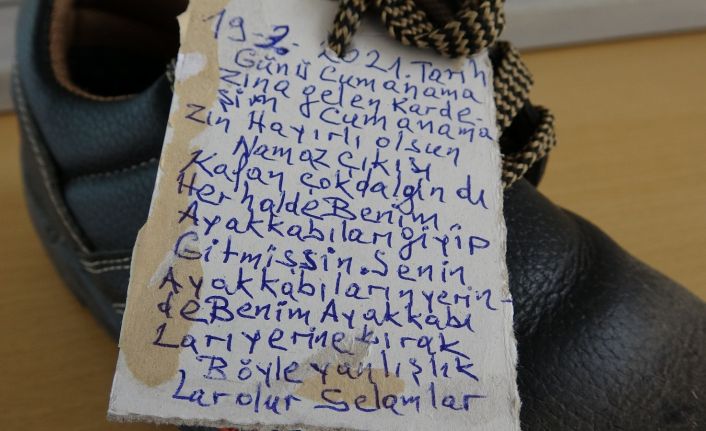 19-2-2021.Tarih
Günü Cumanama
Zina gelen Karde-
şim Cumanama
Zın Hayırlı olsun
Namaz Çıkışı
Kafan çokdalgın dı
Her haldeBenim
Ayakkabılarıgiyip
Gitmişsin.Senin
Ayakkabılarınyerin-
deBenimAyakkabı
Larıyerine bırak
Böyleyanlışlık
Larolur Selamlar